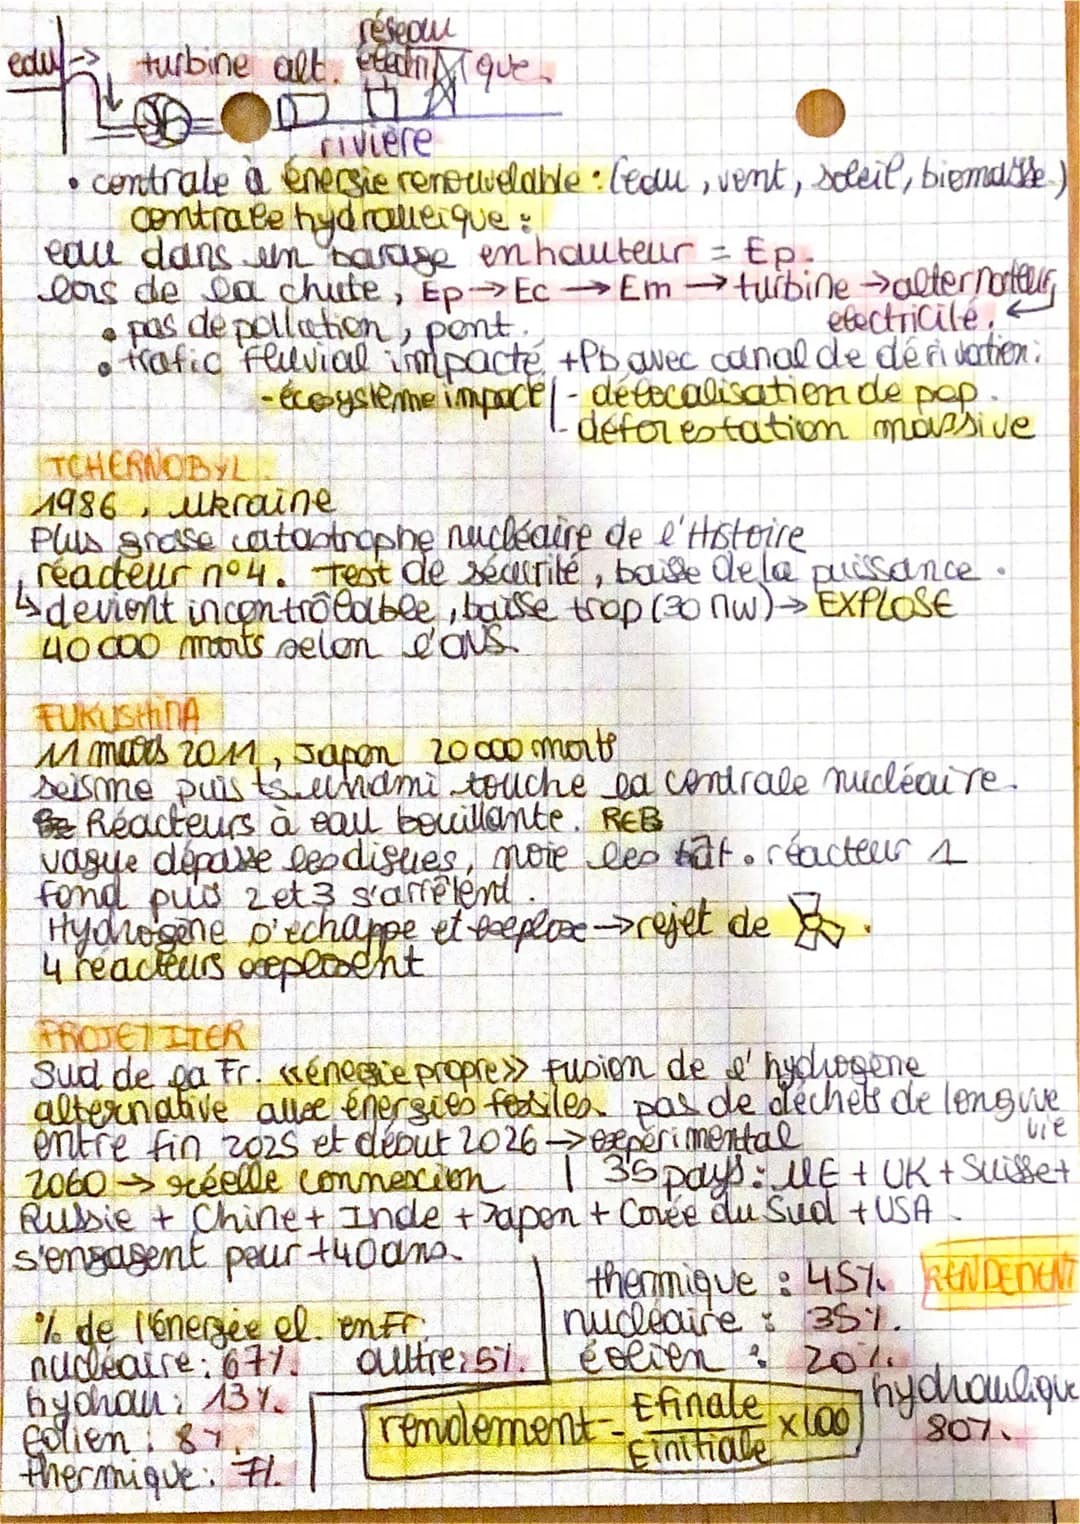 réseau
eau → turbine alt. électrique.
rivière
• centrale à énergie renouvelable : (eau, vent, soleil, biomasse.)
centrale hydraulique :
eau dans un barage en hauteur = Ep.
lors de la chute, Ep → Ec → Em → turbine → alternateur,
• pas de pollution, pont. electricité. ↵
• trafic fluvial impacté + Pb avec canal de dérivation :
- écosysteme impacté | - délocalisation de pop.
- déforestation massive
TCHERNOBYL :
1986, Ukraine
Plus grosse catastrophe nucléaire de l'Histoire
réacteur n°4. Test de sécurité, baisse de la puissance.
↳ devient incontrôlable, baisse trop (30 MW) → EXPLOSE
40 000 morts selon l'OMS.
FUKUSHIMA
11 mars 2011, Japon 20 000 morts
seisme puis tsunami touche la centrale nucléaire.
Réacteurs à eau bouillante. REB
vague dépasse les digues, noie les bât. réacteur 1
fond puis 2 et 3 s'arrêtent.
Hydrogène s'échappe et explose → rejet de ☢.
4 reacteurs explosent
PROJET ITER
Sud de la Fr. «énergie propre» fusion de l'hydrogène
alternative aux énergies fossiles. pas de déchets de longue
vie
entre fin 2025 et début 2026 → expérimental
2060 → réelle connexion | 35 pays : UE + UK + Suisse +
Russie + Chine + Inde + Japon + Corée du Sud + USA.
s'engagent pour +40 ans.
thermique : 45%. RENDEMENT
nucléaire : 35%.
éolien : 20%.
hydraulique
80%.
% de l'énergie el. en Fr.
nucléaire : 67%. autre : 5%.
hydrau : 13%.
éolien : 8%.
thermique : 7%.
rendement = Efinale / Einitiale x100